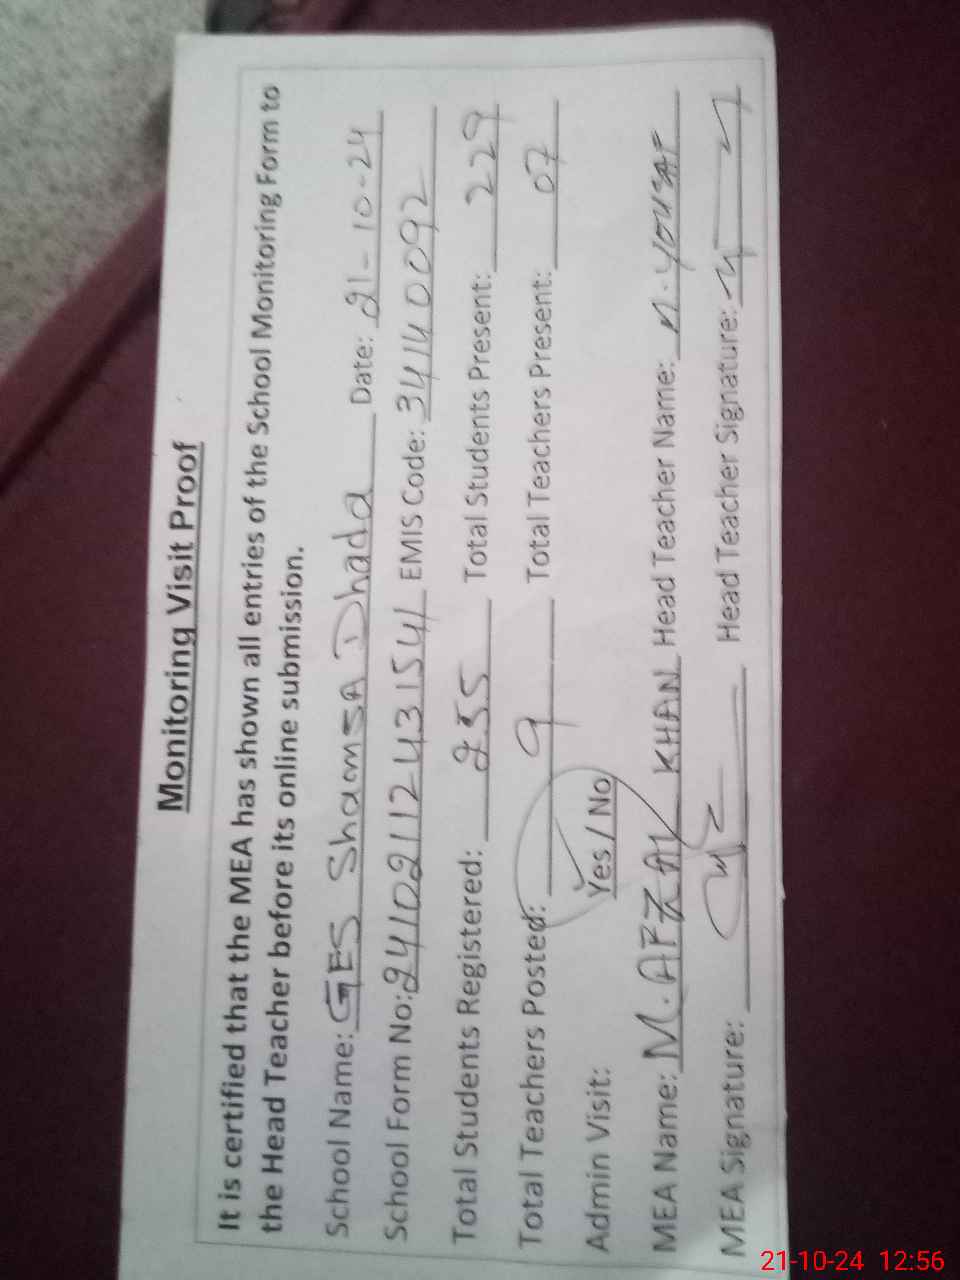 Monitoring Visit Proof
It is certified that the MEA has shown all entries of the School Monitoring Form to
the Head Teacher before its online submission.
School Name: GES Shamsa Dhada Date: 21-10-24
School Form No: 24102112431541 EMIS Code: 34140092
Total Students Registered: 255 Total Students Present: 229
Total Teachers Posted: 9 Total Teachers Present: 07
Admin Visit: Yes / No
MEA Name: M. AFZAL KHAN Head Teacher Name: M. YOUSAF
MEA Signature: Head Teacher Signature:
21-10-24 12:56